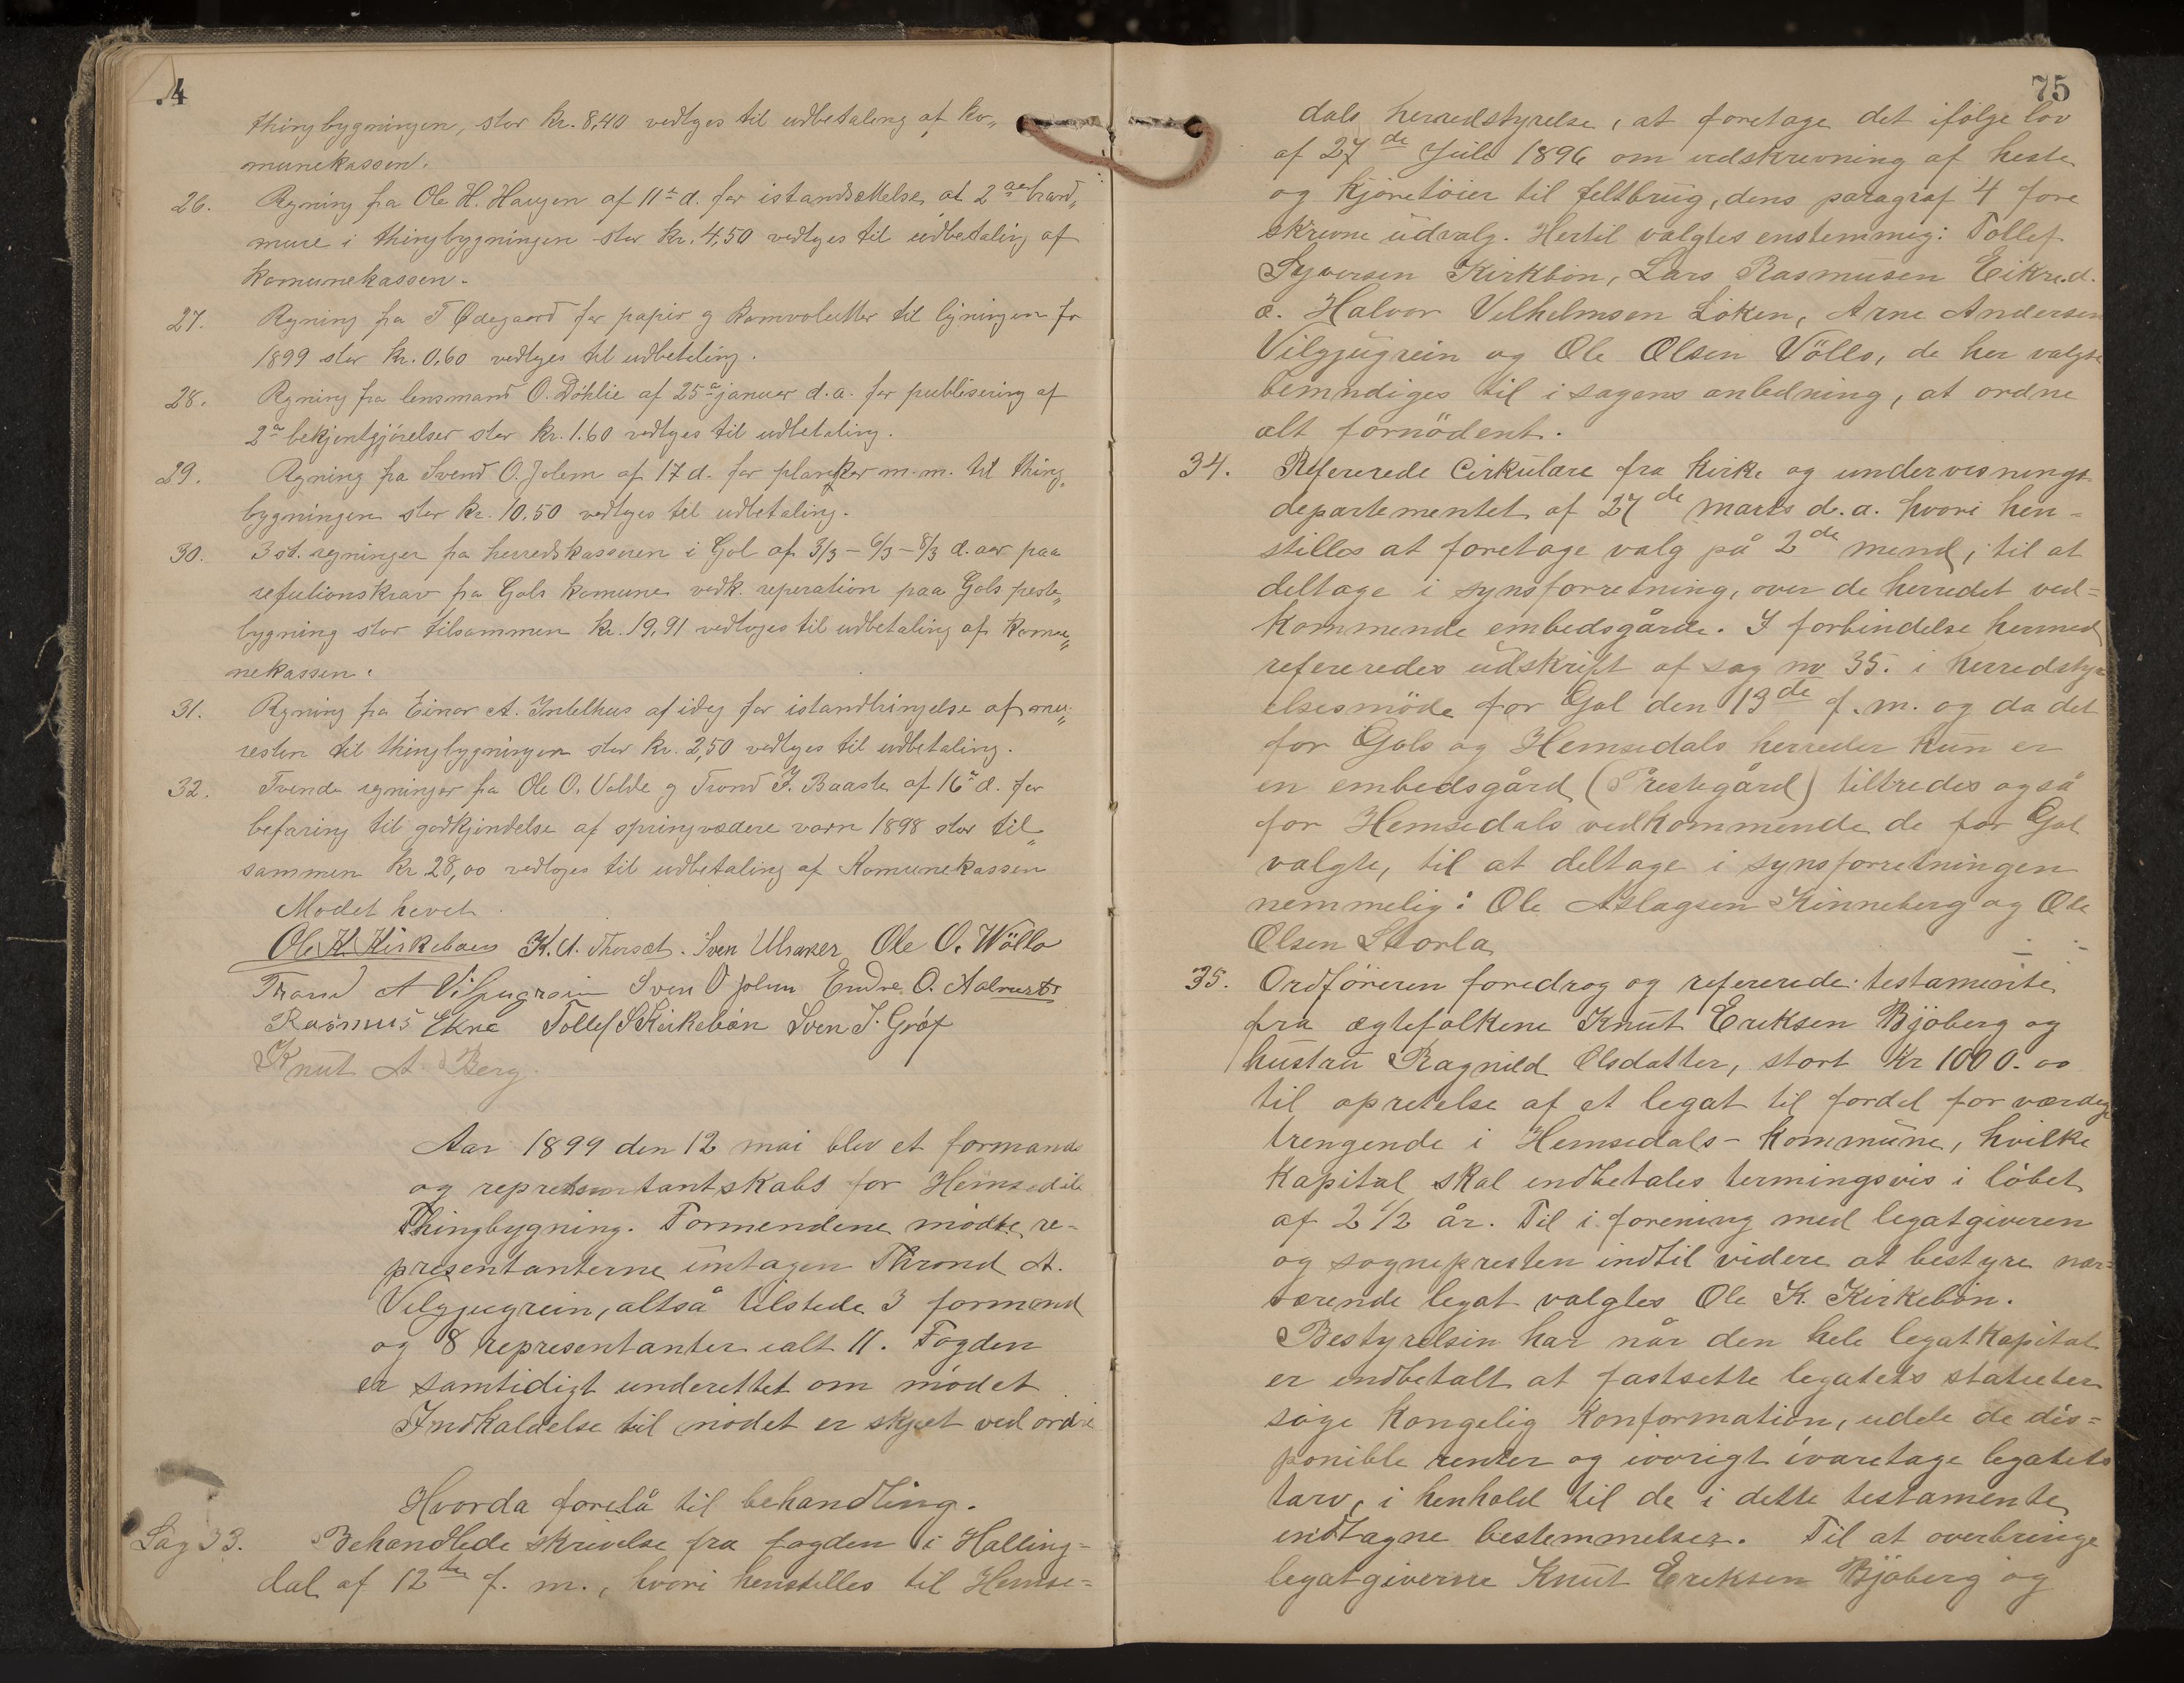 .4
thingbygningen, stor kr. 8,40 vedtges til udbetaling af ko„
munekassen.
26. Regning fra Ole H. Haugen af 11te d. for istandsættelse af 2de brand„
mure i thingbygningen stor kr. 4,50 vedtges til udbetaling af
komunekassen.
27. Regning fra T Ødegaard for papir g komvolutter til ligningen for
1899 stor kr. 0,60 vedtges til udbetaling.
28. Regning fra lensmand O. Döhlie af 25de januar d.a. for publisering af
2de bekjentgjørelser stor kr. 1.60 vedtges til udbetaling.
29. Regning fra Svend O. Jolem af 17 d. for planker m.m. til thing„
bygningen stor kr. 10,50 vedtges til udbetaling.
30. 3 st. regninger fra herredskasseren i Gol af 3/3 – 6/3 – 8/3 d. aar paa
refutionskrav fra Gols komune vedk. reperation paa Gols preste„
bygning stor tilsammen kr. 19,91 vedtoges til udbetaling af komu„
nekassen.
31. Regning fra Einar A. Intelhus af idag for istandbringelse af
resten til thingbygningen stor kr. 2,50 vedtges til udbetaling.
32. Tvende regninger fra Ole O. Valde g Trond T. Baaste af 16de d. for
befaring til godkjendelse af springvædere vaarn 1898 stor til„
sammen kr 28,00 vedtoges til udbetaling af Komunekassen
Mødet hevet.
Ole K. Kirkeboen K. A. Thorset. Sven Ulsaker Ole O. Wöllo
Trond A Vilgugrein Sven O Jolem Endre O.
Rasmus Ekre Tollef S Kirkebön Sven T. Gröf
Knut A. Berg.
Aar 1899 den 12 mai blev et formands
og representantskabs for Hemsedals
Thingbygning. Formendene mödte, re-
presentanterne untagen Thrond A.
Vilgjugrein, altså tilstede 3 formend
og 8 representanter ialt 11. Fogden
er samtidigt underettet om mödet
Indkaldelse til mödet er skjæt ved ordre
Hvorda forelå til behandling.
Sag 33. Behandlede skrivelse fra fogden i Halling=
dal af 12te f. m., hvori henstilles til Hemse=
75
dals herredstyrelse, at foretage det ifölge lov
af 27de Juli 1896 om udskrevning af heste
og Kjöretöier til feltbrug, dens paragraf 4 fore
skrevne udvalg. Hertil valgtes enstemmig: Tollef
Syversen Kirkbön, Lars Rasmusen Eikre.d.
æ. Halvor Vilhelmsen Löken, Arne Andersen
Vilgjugrein og Ole Olsen Völlo, de her valgte
bemndiges til i sagens anledning, at ordne
alt fornödent.
34. Refererede Cirkulære fra Kirke og undervisnings-
departementet af 27de marts d. a. hvori hen-
stilles at foretage valg på 2de mend, til at
deltage i synsforretning, over de herredet ved=
kommende embedsgårde. I forbindelse hermed
refereredes udskrift af sag no 35. i herredsty-
elsesmöde for Gol den 13de f. m. og da det
for Gols og Hemsedals herreder kun er
en embedsgård (Prestegård) tiltredes også
for Hemsedals vedkommende de for Gol
valgte, til at deltage i synsforretningen
nemmelig: Ole Aslagsen Kinneberg og Ole
Olsen Storla
35. Ordföreren foredrog og refererede testamente
fra ægtefolkene Knut Eriksen Bjöberg og
hustru Ragnild Olsdatter, stort Kr 1000.00
til opretelse af et legat til fordel for værdige
trengende i Hemsedals-Kommune, hvilke
Kapital skal indbetales termingsvis i löbet
af 2 1/2 år. Til i forening med legatgiveren
og sognepresten indtil videre at bestyre nær=
værende legat valgtes Ole K. Kirkebön.
Bestyrelsin har når den hele legatkapital
er indbetalt at fastsette legatets statuter
söge Kongelig Konformation, udele de dis=
ponible renter og iövrigt ivaretage legatets
tarv, i henhold til de i dette testamente
indtagne bestemmelser. Til at overbringe
legatgiverne Knut Ereksen Bjöberg og